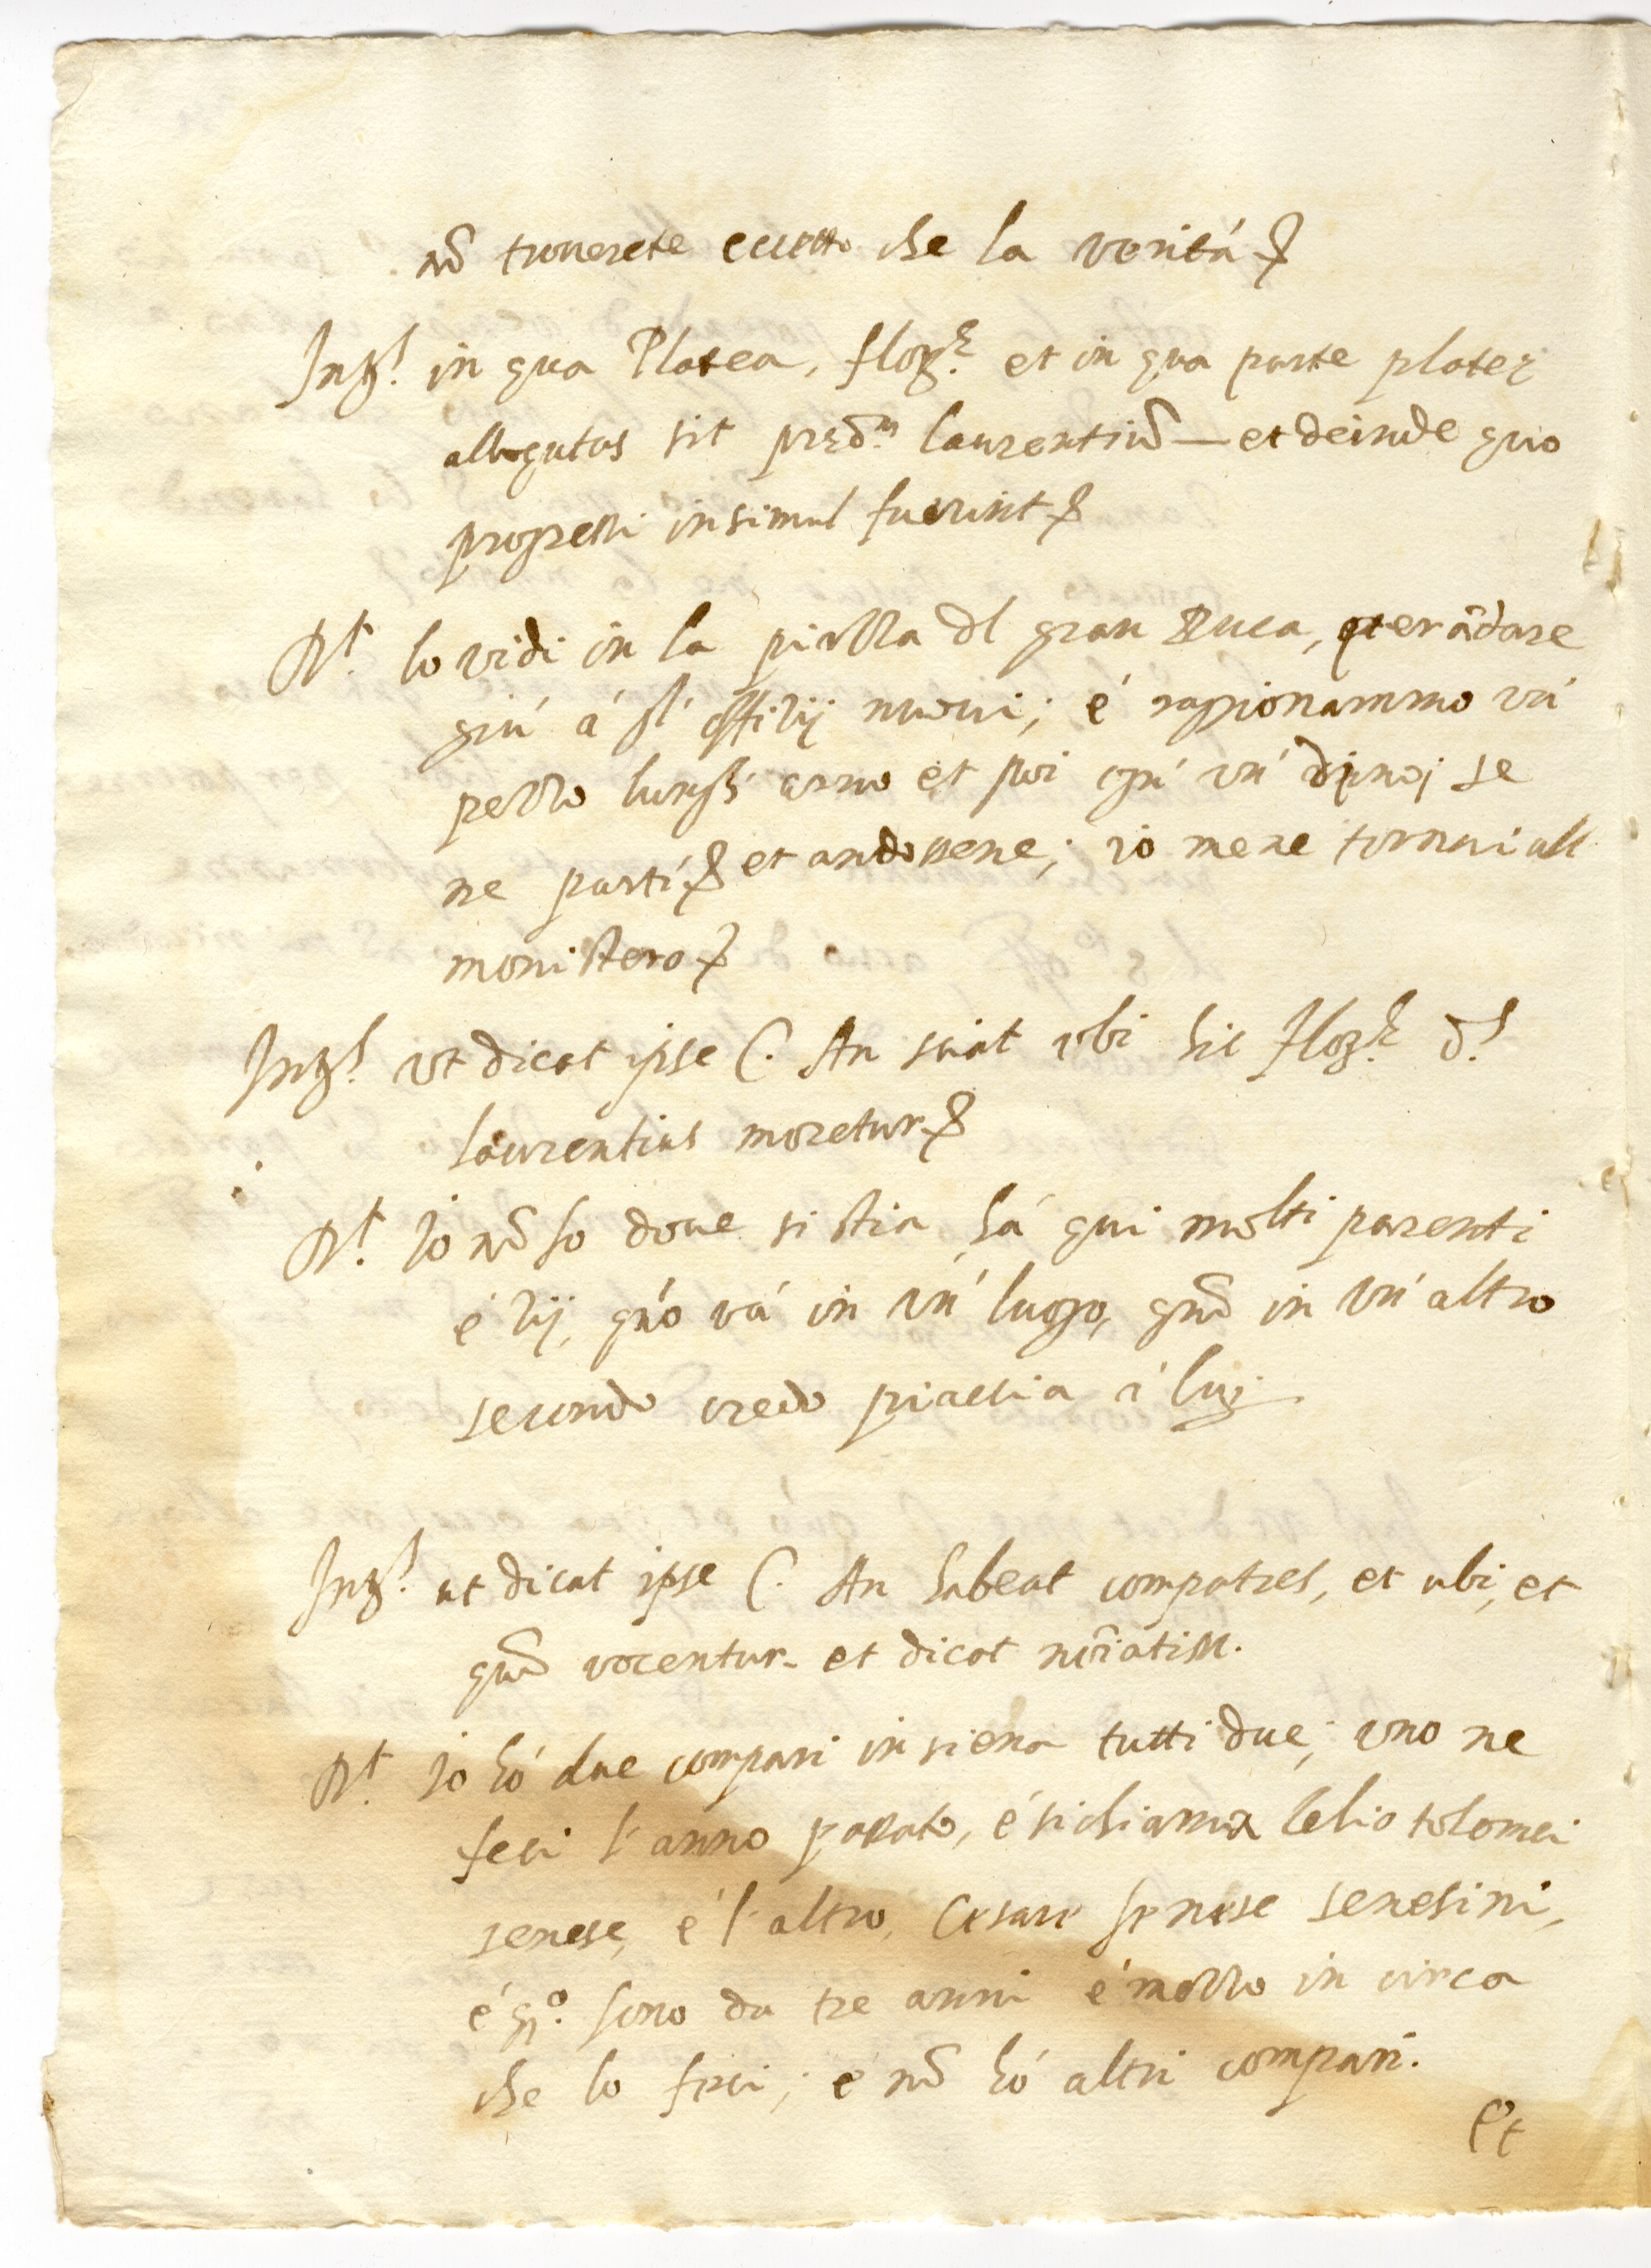 nõ trouerete eccetto che la verità
Intꝫ.s in qua Platea, floꝫ.e et in qua parte plateę
allogutus sit pręd.m laurentiũ — et deinde quo
progressi insimul fuerint
Rt. lo vidi in la piazza dl gran Duca, per ãdare
giu' á gl' offitij nuoui; é raggionammo un'
pezzo lungh' arno et poi ogn' un' di noj se
ne partí et andossene; io me ne tornai all
monistero
Intꝫ.s ut dicat ipse C. An sciat ubi hic floꝫ.e d.s
laurentius moretur
Rt. Io nõ so doue si stia, há qui molti parenti
é zij, qño vá in un' luogo, qñ in un' altro
secondo credo piaccia à luj
Intꝫ.s ut dicat ipse C. An habeat compatres, et ubi, et
qm̃ vocentur. et dicat noĩatim.
Rt. Io hó due compari in siena tutti due; uno ne
feci l'anno passato, é si chiama lelio tolomei
senese, é l'altro, Cesare senese senesini,
é q.o sono da tre anni é mezzo in circa
che lo feci; é nõ hó altri compari.
Et